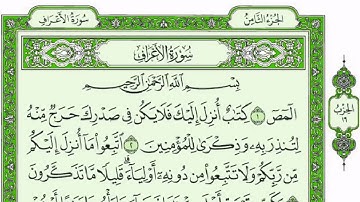 الجزء الثامن
سورة الأعراف
سُورَةُ الأَعْرَافِ
بِسْمِ اللَّهِ الرَّحْمَٰنِ الرَّحِيمِ
الٓمٓصٓ ١ كِتَٰبٌ أُنزِلَ إِلَيْكَ فَلَا يَكُن فِى صَدْرِكَ حَرَجٌ مِّنْهُ
لِتُنذِرَ بِهِۦ وَذِكْرَىٰ لِلْمُؤْمِنِينَ ٢ ٱتَّبِعُوا۟ مَآ أُنزِلَ إِلَيْكُم
مِّن رَّبِّكُمْ وَلَا تَتَّبِعُوا۟ مِن دُونِهِۦٓ أَوْلِيَآءَ قَلِيلًا مَّا تَذَكَّرُونَ
الحزب
١٦